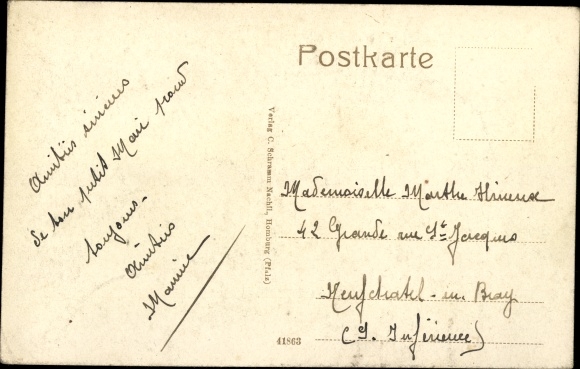 Postkarte
Amitiés sincères
de ton petit Mari pour
toujours.
Amitiés
Maurice
Verlag C. Schramm Nachfl., Homburg (Pfalz)
Mademoiselle Marthe
42 Grande rue St Jacques
Neufchatel-en-Bray
(S. Inférieure)
41863